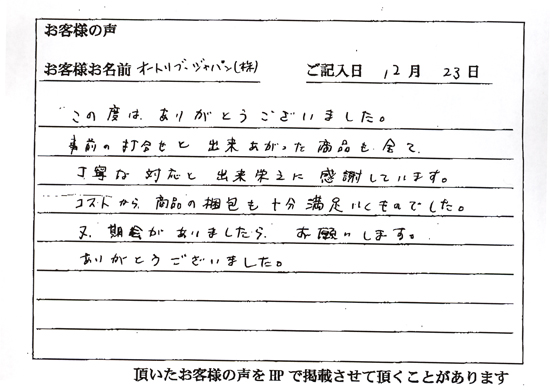 お客様の声
お客様お名前 オートリブ・ジャパン(株) ご記入日 12月 23日
この度は、ありがとうございました。
事前の打合せと 出来あがった商品も、全て、
丁寧な対応と 出来栄えに 感謝しています。
コストから、商品の梱包も十分満足いくものでした。
又、期会がありましたら、お願いします。
ありがとうございました。
頂いたお客様の声をHPで掲載させて頂くことがあります